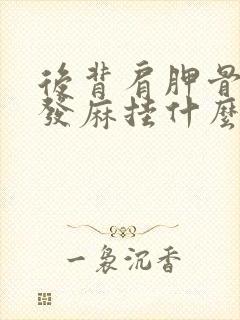 後背肩胛骨
發麻挂什麼
一裊沉香